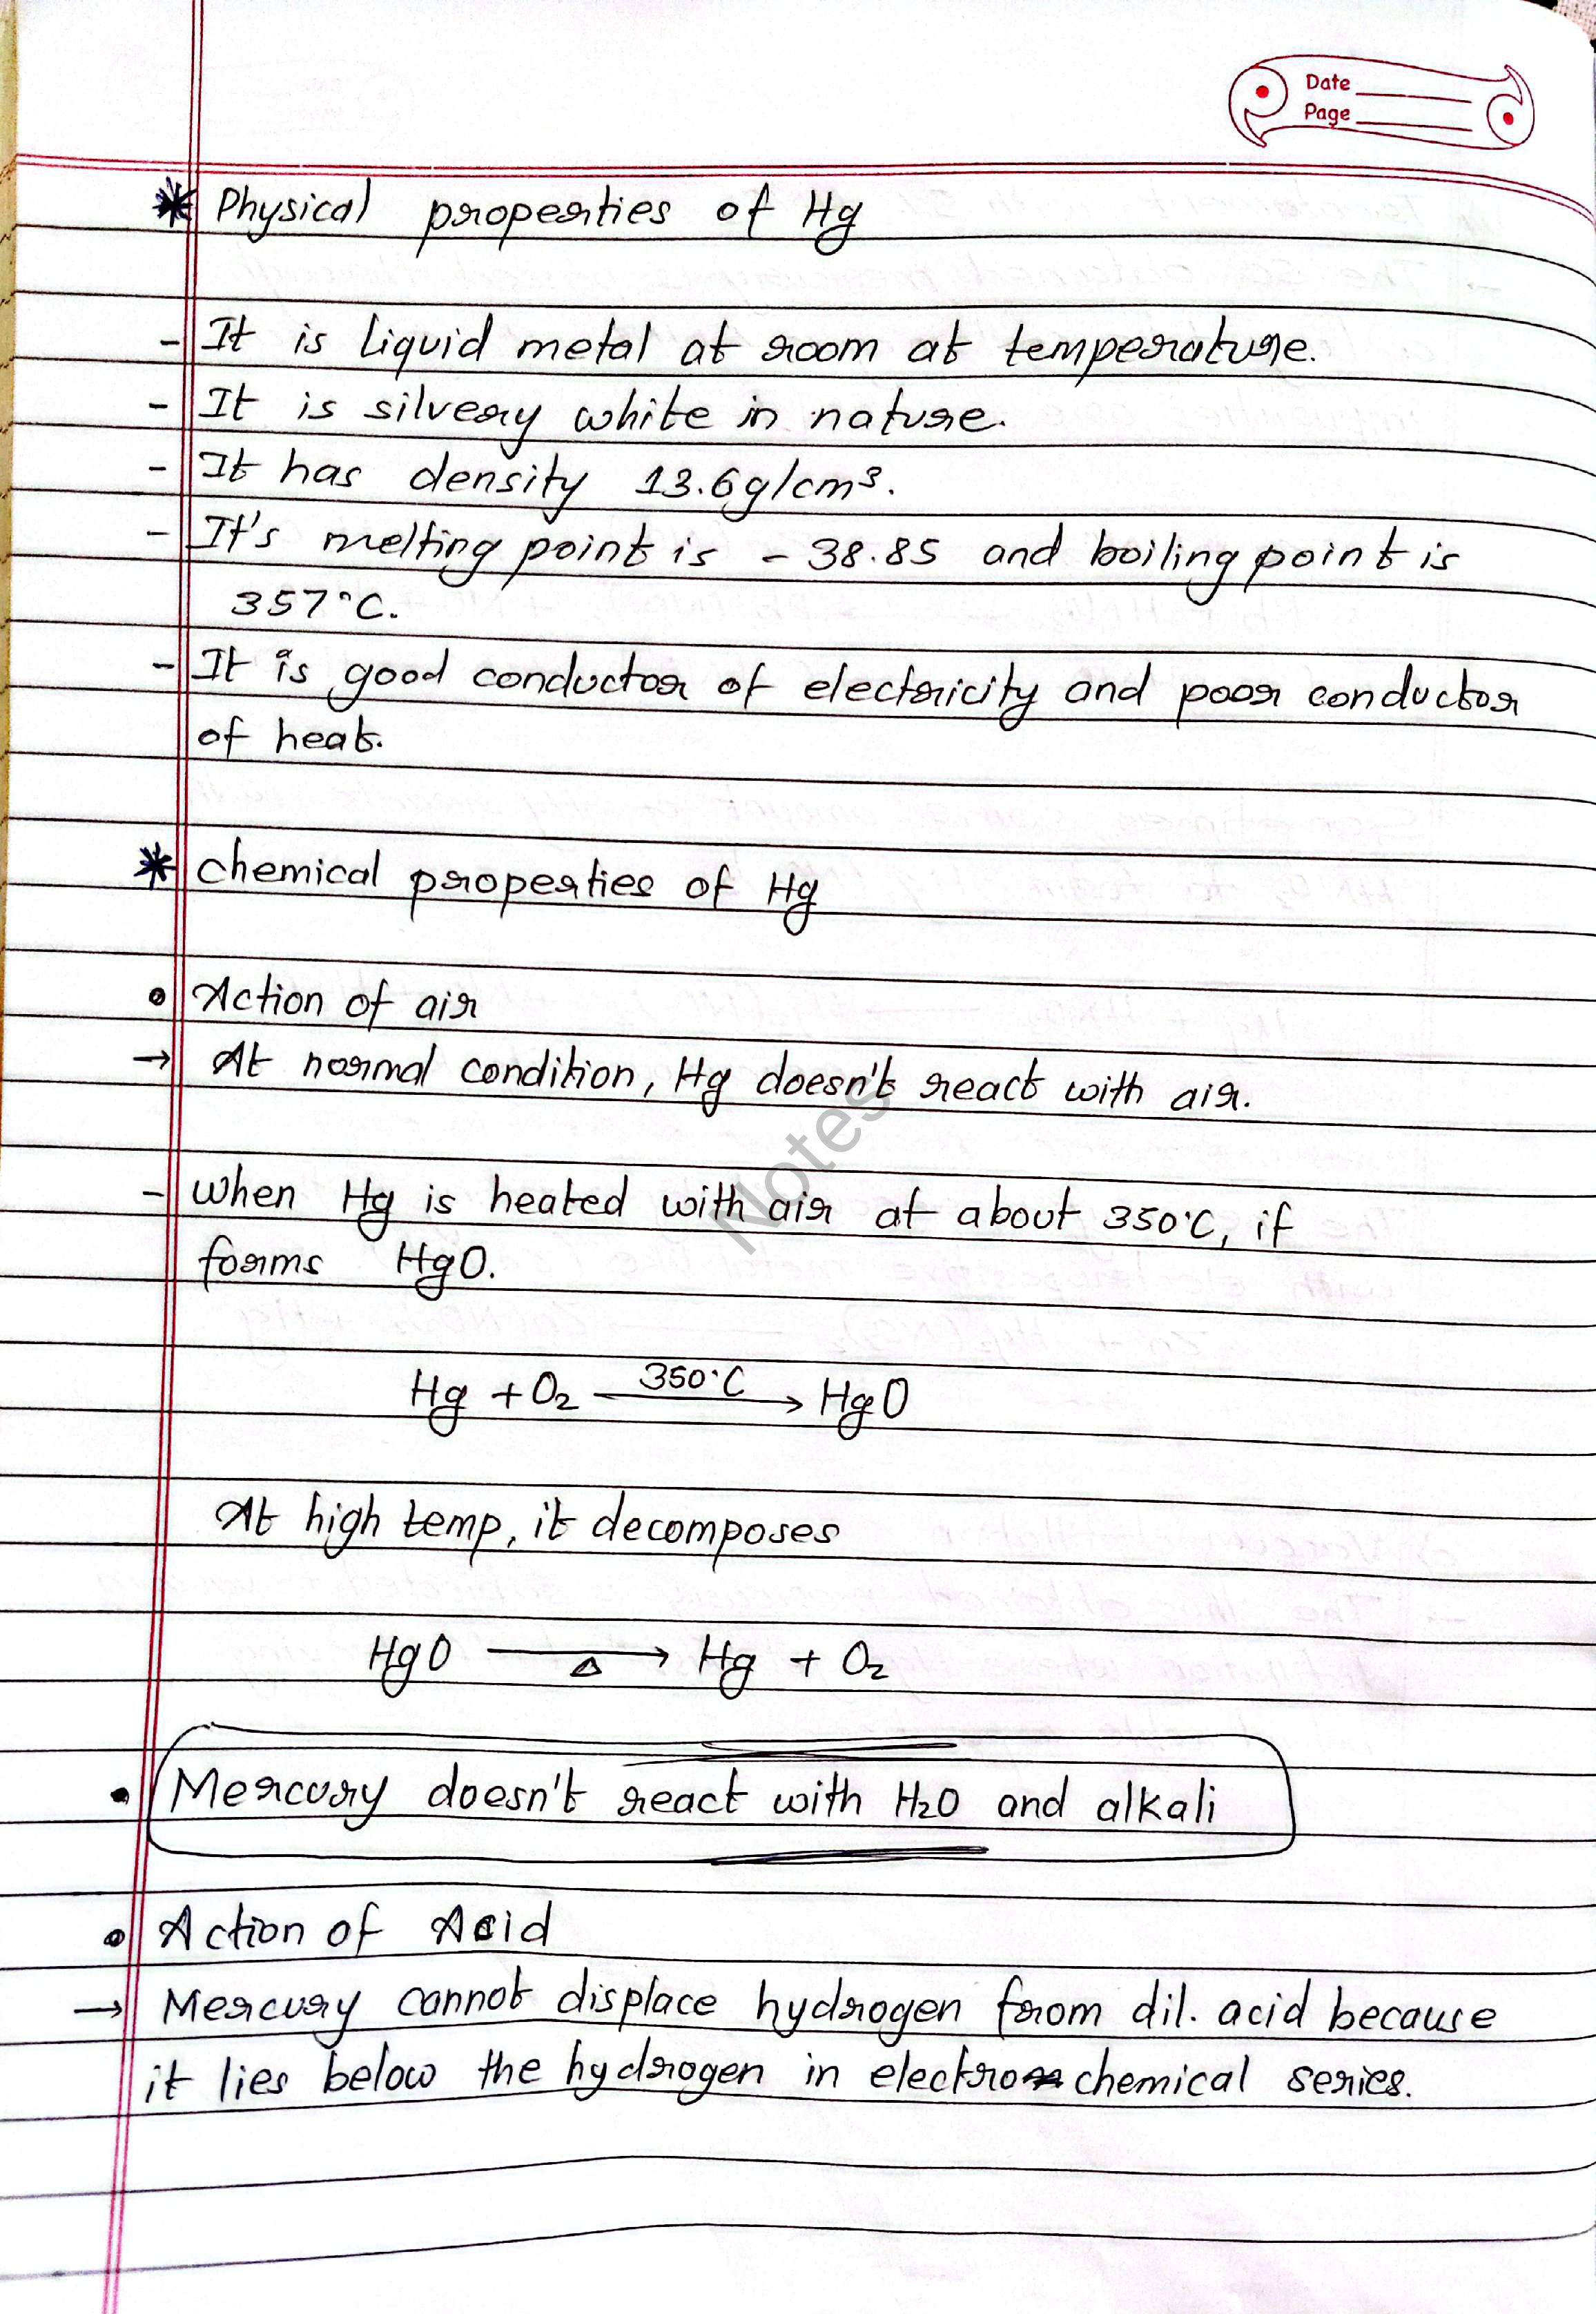 Date
Page
* Physical properties of Hg
- It is liquid metal at room at temperature.
- It is silvery white in nature.
- It has density 13.6g/cm³.
- It's melting point is - 38.85 and boiling point is
357°C.
- It is good conductor of electricity and poor conductor
of heat.
* chemical properties of Hg
• Action of air
→ At normal condition, Hg doesn't react with air.
Notes
- When Hg is heated with air at about 350°C, if
forms HgO.
Hg + O₂ —350°C→ HgO
At high temp, it decomposes
HgO —Δ→ Hg + O₂
• Mercury doesn't react with H₂O and alkali
• Action of Acid
→ Mercury cannot displace hydrogen from dil. acid because
it lies below the hydrogen in electrochemical series.